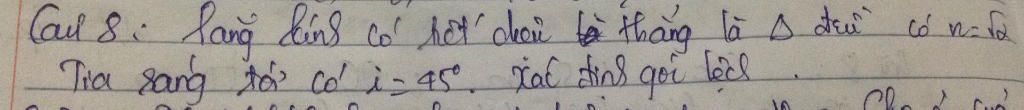 Câu 8: Lăng kính có tiết diện thẳng là Δ đều có n=√2
Tia sáng tới có i = 45°. Xác định góc lệch.